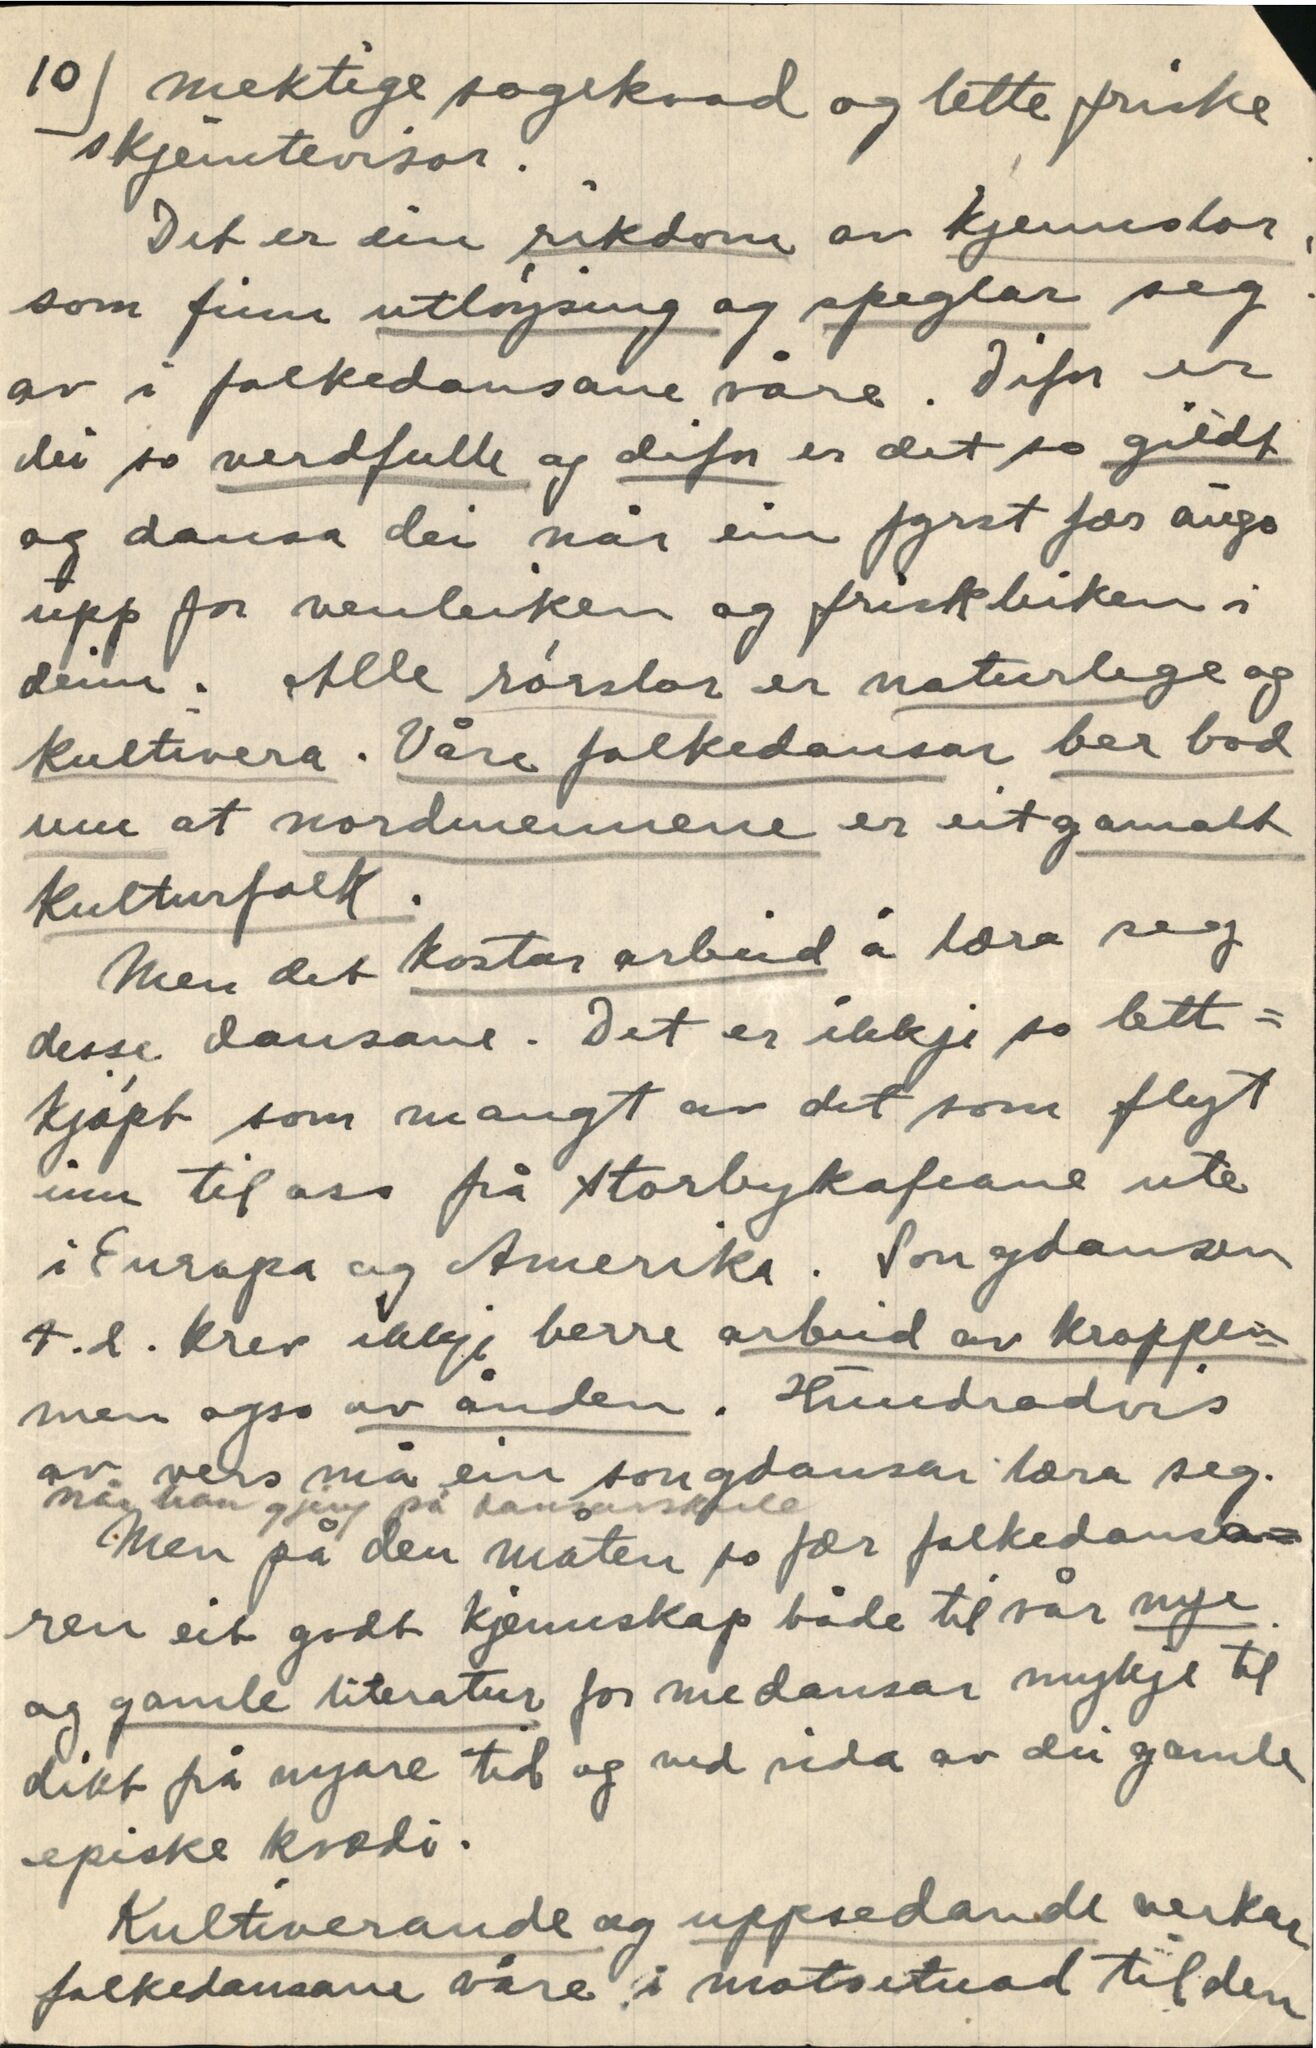 10) mektige sogekvad og lette friske
skjemtevisor.
Det er ein rikdom av kjenslor,
som finn utløysing og speglar seg
av i folkedansane våre. Difor er
dei so verdfulle og difor er det so gildt
og dansa dei når ein fyrst fær augo
upp for venleiken og friskleiken i
deim. Alle rørslor er naturlege og
kultivera. Våre folkedansar ber bod
um at nordmennene er eit gamalt
kulturfolk.
Men det kostar arbeid å læra seg
desse dansane. Det er ikkje so lett=
kjøpt som mangt av det som flyt
inn til oss frå storbykafeane ute
i Europa og Amerika. Songdansen
t.d. krev ikkje berre arbeid av kroppen
men ogso av ånden. Hundradvis
av vers må ein songdansar læra seg.
når han gjeng på dansarskule
Men på den måten so fær folkedansa=
ren eit godt kjennskap både til vår nye
og gamle literatur for me dansar mykje til
dikt frå nyare tid og ved sida av dei gamle
episke kvædi.
Kultiverande og uppsedande verkar
folkedansane våre i motsetnad til den